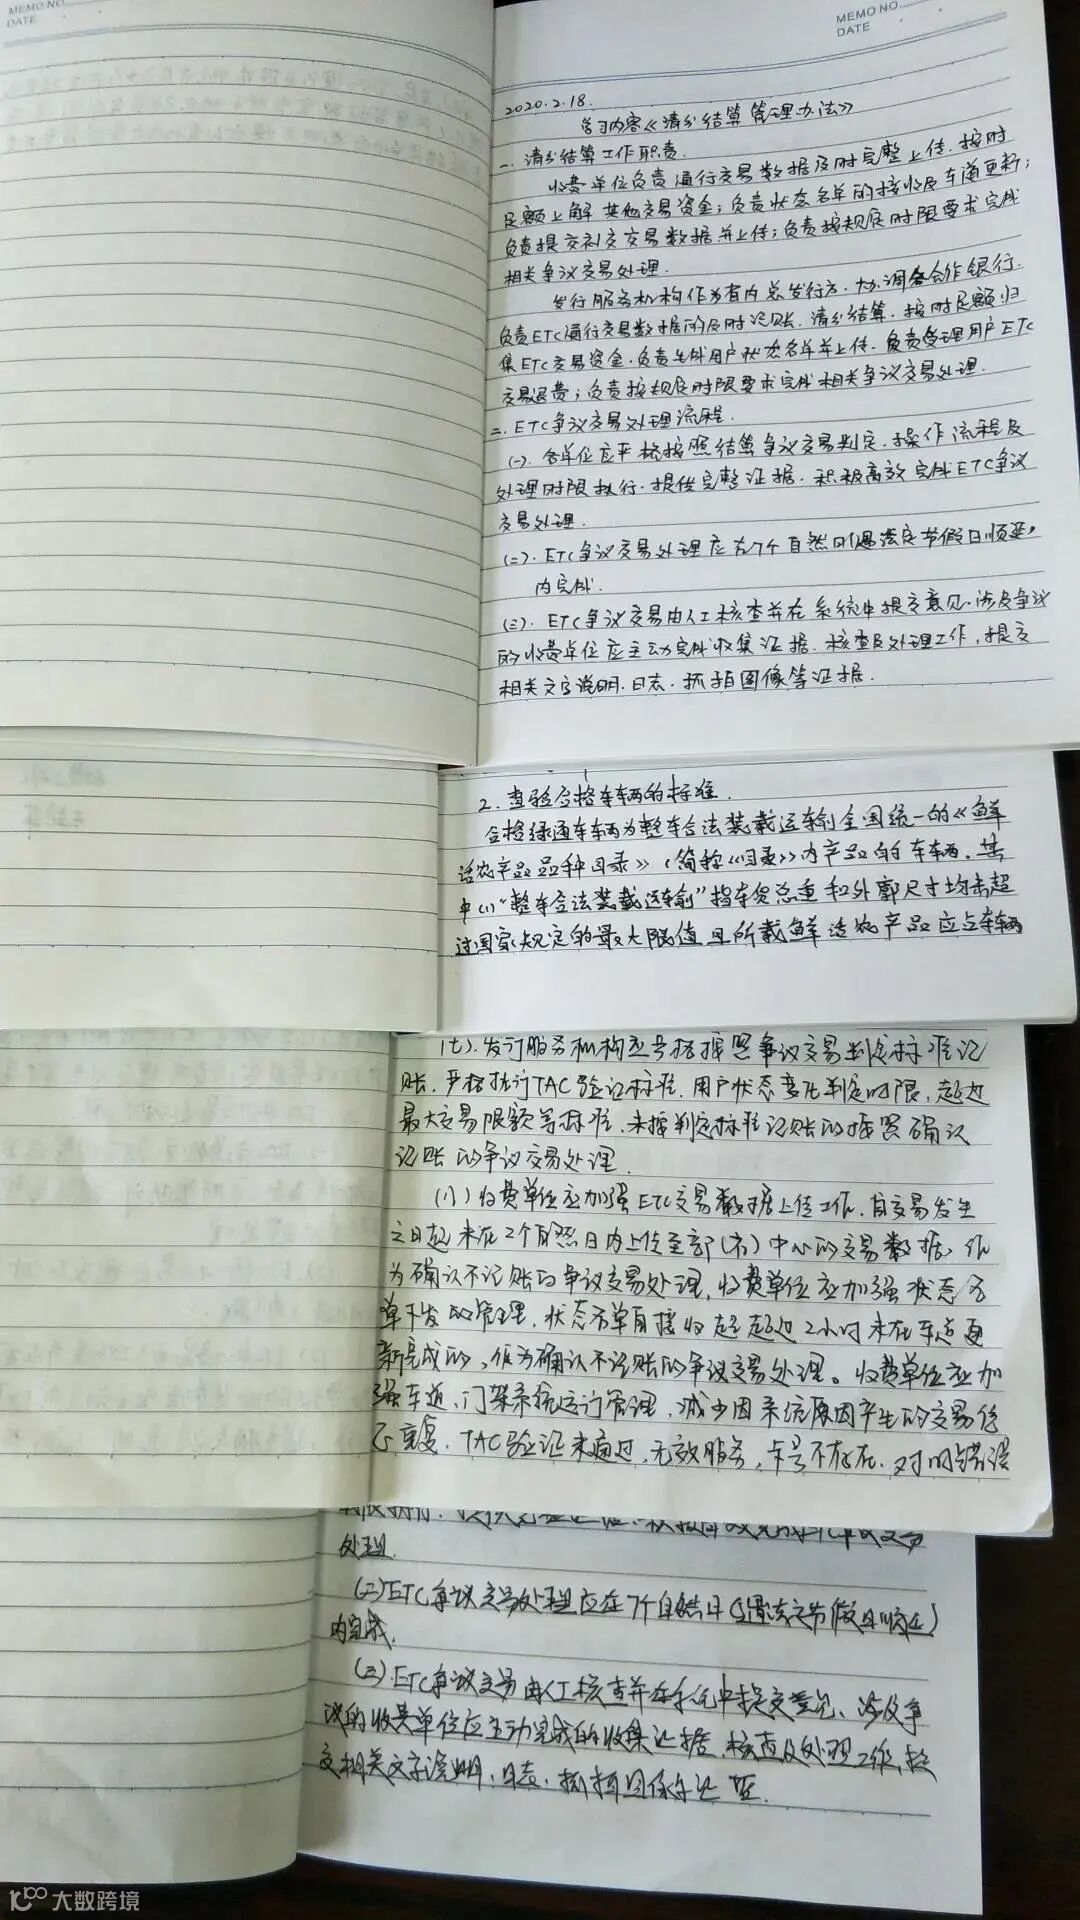 MEMO NO.
DATE
MEMO NO.
DATE
2020.2.18.
学习内容《清分结算管理办法》
一.清分结算工作职责.
收费单位负责通行交易数据及时完整上传.按时
足额上解其他交易资金;负责状态名单的接收及车道更新;
负责提交补交交易数据并上传;负责按规定时限要求完成
相关争议交易处理.
发行服务机构作为省内总发行方.协调各合作银行.
负责ETC通行交易数据的及时记账.清分结算.按时足额归
集ETC交易资金.负责生成用户状态名单并上传.负责受理用户ETC
交易退费;负责按规定时限要求完成相关争议交易处理.
二.ETC争议交易处理流程.
(一).各单位应严格按照结算争议交易判定.操作流程及
处理时限执行.提供完整证据.积极高效完成ETC争议
交易处理.
(二).ETC争议交易处理应在7个自然日(遇法定节假日顺延)
内完成.
(三).ETC争议交易由人工核查并在系统中提交意见.涉及争议
的收费单位应主动完成收集证据.核查及处理工作,提交
相关文字说明.日志.抓拍图像等证据.
2.查验合格车辆的标准.
合格绿通车辆为整车合法装载运输全国统一的《鲜
活农产品品种目录》(简称《目录》)内产品的车辆.其
中(1)"整车合法装载运输"指车货总重和外廓尺寸均未超
过国家规定的最大限值且所载鲜活农产品应占车辆
(七).发行服务机构应严格按照争议交易判定标准记
账.严格执行TAC验证标准.用户状态变化判定时限,超过
最大交易限额等标准.未按判定标准记账的按照确认
记账的争议交易处理.
(八)收费单位应加强ETC交易数据上传工作.自交易发生
之日起未在2个自然日内上传至部(省)中心的交易数据,作
为确认不记账的争议交易处理,收费单位应加强状态名
单下发的管理.状态名单自接收起超过2小时未在车道更
新完成的,作为确认不记账的争议交易处理。收费单位应加
强车道、门架系统运行管理,减少因系统原因产生的交易信
息重复.TAC验证未通过,无效服务,卡号不存在.对时错误
处理.
(二)ETC争议交易处理应在7个自然日(遇法定节假日顺延)
内完成.
(三).ETC争议交易由人工核查并在系统中提交意见、涉及争
议的收费单位应主动完成的收集证据.核查及处理工作,提
交相关文字说明.日志.抓拍图像等证据.
大数跨境